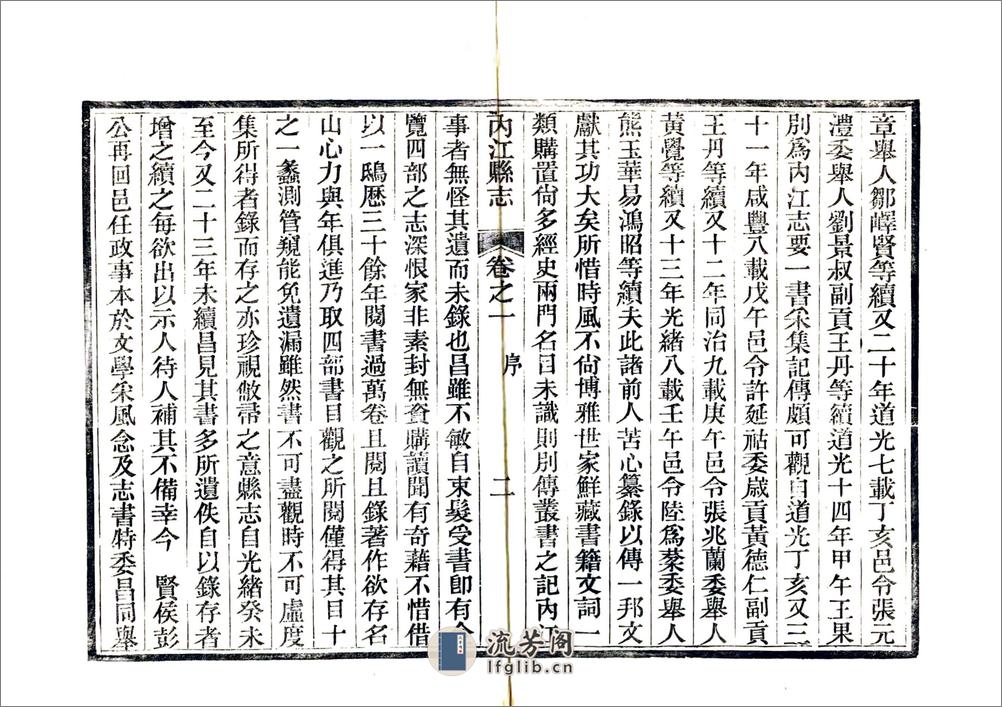 章舉人鄒嶧賢等續又二十年道光七載丁亥邑令張元
澧委舉人劉景叔副貢王丹等續道光十四年甲午王果
別為內江志要一書采集記傳頗可觀自道光丁亥又三
十一年咸豐八載戊午邑令許延祜委歲貢黃德仁副貢
王丹等續又十二年同治九載庚午邑令張兆蘭委舉人
黃覺等續又十三年光緒八載壬午邑令陸為棻委舉人
熊玉華易鴻昭等續夫此諸前人苦心纂錄以傳一邦文
獻其功大矣所惜時風不尙博雅世家鮮藏書籍文詞一
類購置尙多經史兩門名目未識則別傳叢書之記內江
內江縣志 卷之一 序 二
事者無怪其遺而未錄也昌雖不敏自束髮受書卽有今
覽四部之志深恨家非素封無資購讀聞有奇藉不惜借
以一鴟歷三十餘年閱書過萬卷且閱且錄著作欲存名
山心力與年俱進乃取四部書目觀之所閱僅得其目十
之一蠡測管窺能免遺漏雖然書不可盡觀時不可虛度
集所得者錄而存之亦珍視敝帚之意縣志自光緒癸未
至今又二十三年未續昌見其書多所遺佚自以錄存者
增之續之每欲出以示人待人補其不備幸今 賢侯彭
公再回邑任政事本於文學采風念及志書特委昌同舉
流芳阁
lfglib.cn